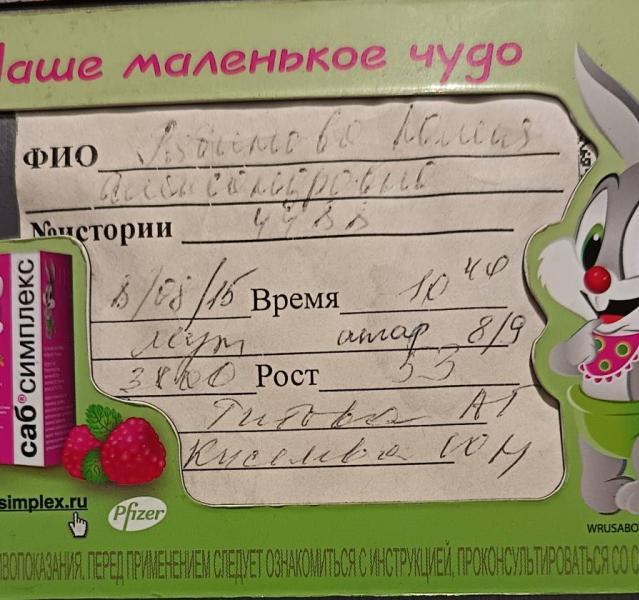 аше маленькое чудо
ФИО
№истории
8/08/15 Время 10 40
апгар 8/9
3800 Рост 53
Титова АГ
Киселева ЮН
саб® симплекс
simplex.ru
Pfizer
WRUSABO
ИВОПОКАЗАНИЯ. ПЕРЕД ПРИМЕНЕНИЕМ СЛЕДУЕТ ОЗНАКОМИТЬСЯ С ИНСТРУКЦИЕЙ, ПРОКОНСУЛЬТИРОВАТЬСЯ СО С